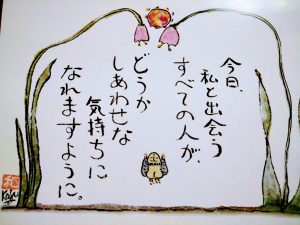 今日、
私と出会う
すべての人が、
どうか
しあわせな
気持ちに
なれますように。
和